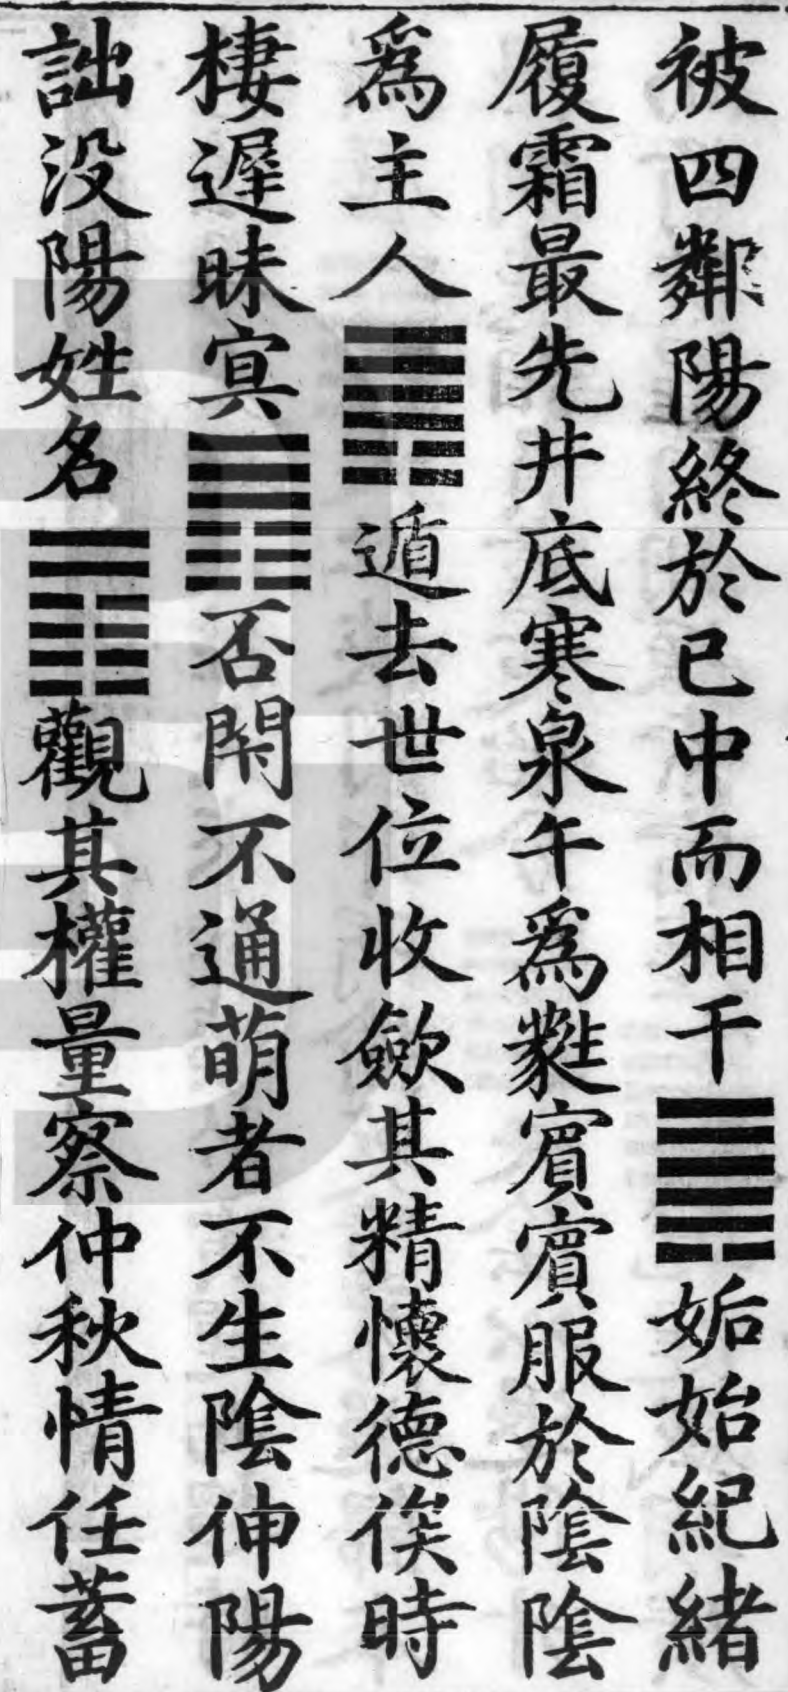 被四鄰陽終於巳中而相干䷫姤始紀緒
履霜最先井底寒泉午爲蕤賓賓服於陰陰
爲主人䷠遁去世位收歛其精懷德俟時
棲遲昧㝠䷋否閇不通萌者不生陰伸陽
詘没陽姓名䷓觀其權量察仲秋情任蓄